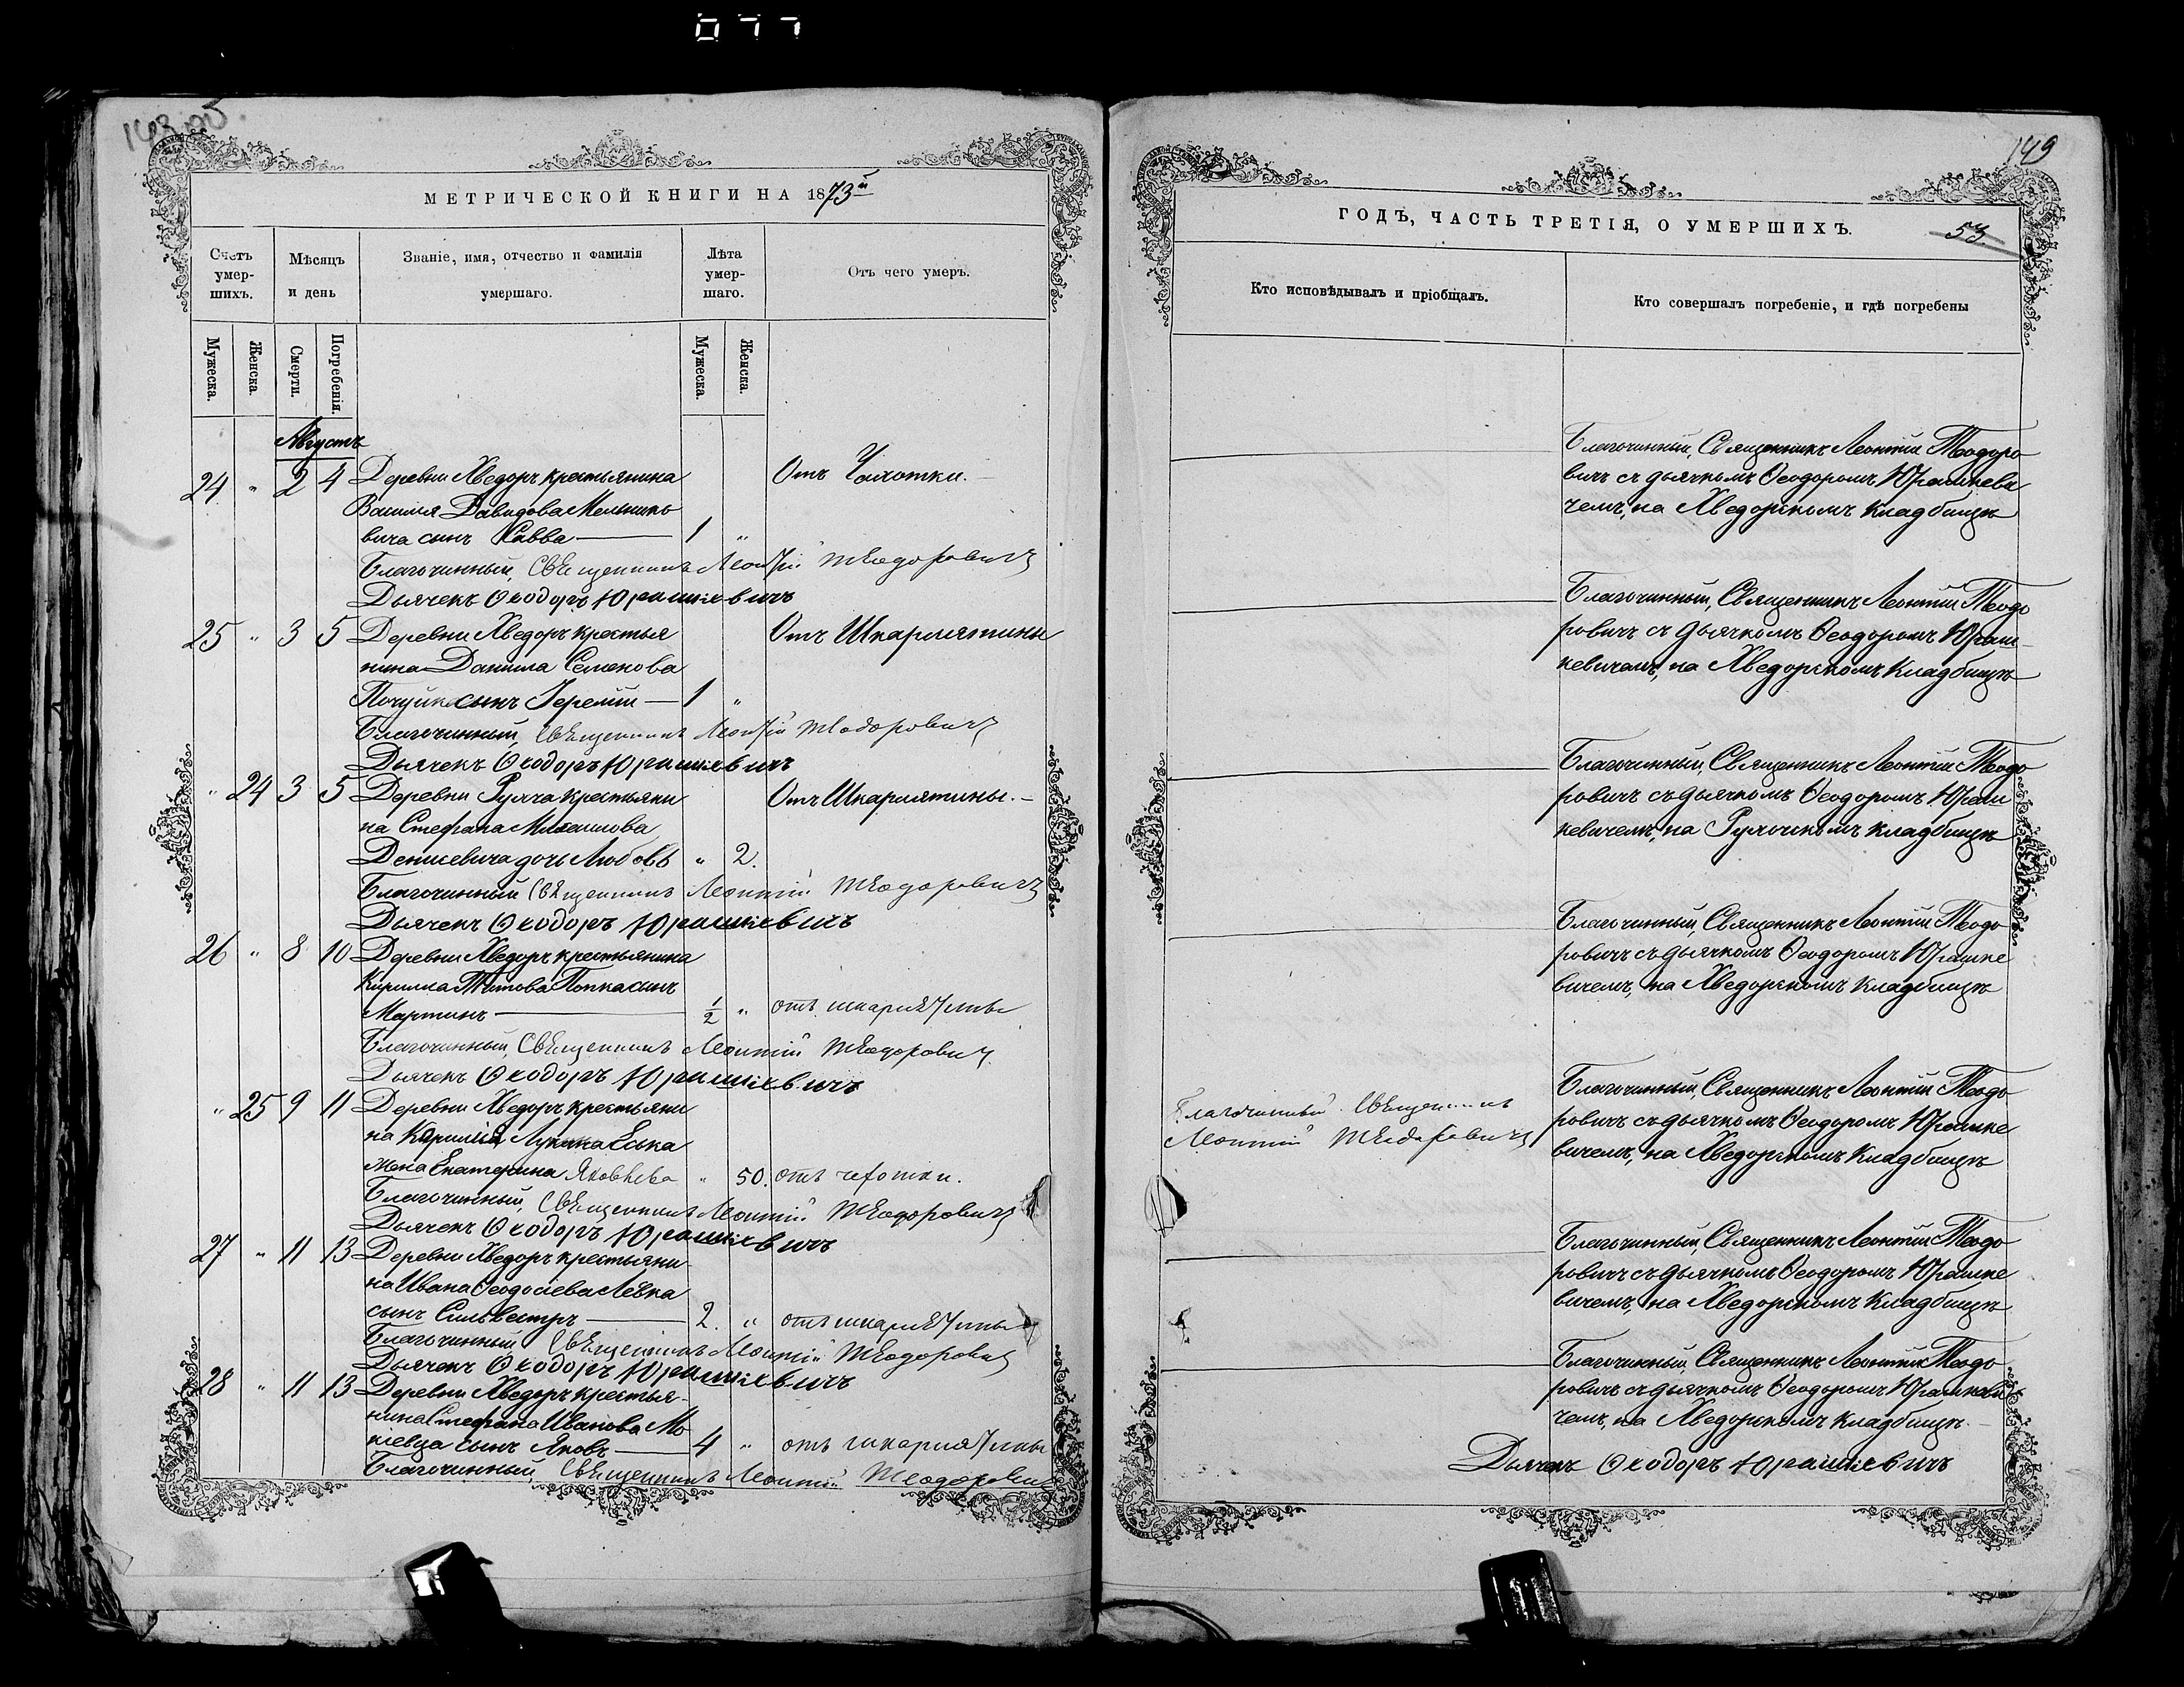 077
149
МЕТРИЧЕСКОЙ КНИГИ НА 1873й
Счетъ умершихъ.
Мѣсяцъ и день
Званіе, имя, отчество и фамилія умершаго.
Лѣта умершаго.
Отъ чего умеръ.
Мужеска. Женска. Смерти. Погребенія. Мужеска. Женска.
Августъ
24 " 2 4 Деревни Хведоръ крестьянина Отъ Чахотки.
Василія Давидова Мельнико
вича сынъ Савва — 1 "
Благочинный, Священникъ Леонтій Теодоровичъ
Дьячекъ Ѳеодоръ Юрашкевичъ
25 " 3 5 Деревни Хведоръ крестья Отъ Шкарлятины
нина Данила Семенова
сынъ Іеремій — 1 "
Благочинный, Священникъ Леонтій Теодоровичъ
Дьячекъ Ѳеодоръ Юрашкевичъ
" 24 3 5 Деревни Рулча крестьяни Отъ Шкарлятины.
на Стефана Михаилова
Денисевича дочь Любовь " 2.
Благочинный Священникъ Леонтій Теодоровичъ
Дьячекъ Ѳеодоръ Юрашкевичъ
26 " 8 10 Деревни Хведоръ крестьянина
Кирилла Титова Попка сынъ
Мартинъ — 1/2 " отъ шкарлятины
Благочинный, Священникъ Леонтій Теодоровичъ
Дьячекъ Ѳеодоръ Юрашкевичъ
" 25 9 11 Деревни Хведоръ крестьяни
на Лукина Еська
жена Екатерина Яковлева " 50. отъ чехотки.
Благочинный, Священникъ Леонтій Теодоровичъ
Дьячекъ Ѳеодоръ Юрашкевичъ
27 " 11 13 Деревни Хведоръ крестьяни
на Ивана Ѳеодосіева Левка
сынъ Сильвестръ — 2. " отъ шкарлятины
Благочинный Священникъ Леонтій Теодоровичъ
Дьячекъ Ѳеодоръ Юрашкевичъ
28 " 11 13 Деревни Хведоръ крестья-
нина Стефана Иванова Мо
сынъ Яковъ — 4 " отъ шкарлятины
Благочинный, Священникъ Леонтій Теодоровичъ
ГОДЪ, ЧАСТЬ ТРЕТІЯ, О УМЕРШИХЪ.
53
Кто исповѣдывалъ и пріобщалъ.
Кто совершалъ погребеніе, и гдѣ погребены
Благочинный, Священникъ Леонтій Теодоро
вичъ съ дьячкомъ Ѳеодоромъ Юрашкеви
чемъ, на Хведорскомъ кладбищѣ
Благочинный, Священникъ Леонтій Теодо
ровичъ съ дьячкомъ Ѳеодоромъ Юраш-
кевичемъ, на Хведорскомъ кладбищѣ
Благочинный, Священникъ Леонтій Теодо
ровичъ съ дьячкомъ Ѳеодоромъ Юраш
кевичемъ, на Рулчскомъ кладбищѣ
Благочинный, Священникъ Леонтій Теодо
ровичъ съ дьячкомъ Ѳеодоромъ Юрашке
вичемъ, на Хведорскомъ кладбищѣ
Благочинный Священникъ
Леонтій Теодоровичъ
Благочинный, Священникъ Леонтій Теодо
ровичъ съ дьячкомъ Ѳеодоромъ Юрашке
вичемъ, на Хведорскомъ кладбищѣ
Благочинный, Священникъ Леонтій Теодо
ровичъ съ дьячкомъ Ѳеодоромъ Юрашке
вичемъ, на Хведорскомъ кладбищѣ
Благочинный, Священникъ Леонтій Теодо
ровичъ съ дьячкомъ Ѳеодоромъ Юрашкеви
чемъ, на Хведорскомъ кладбищѣ.
Дьячекъ Ѳеодоръ Юрашкевичъ